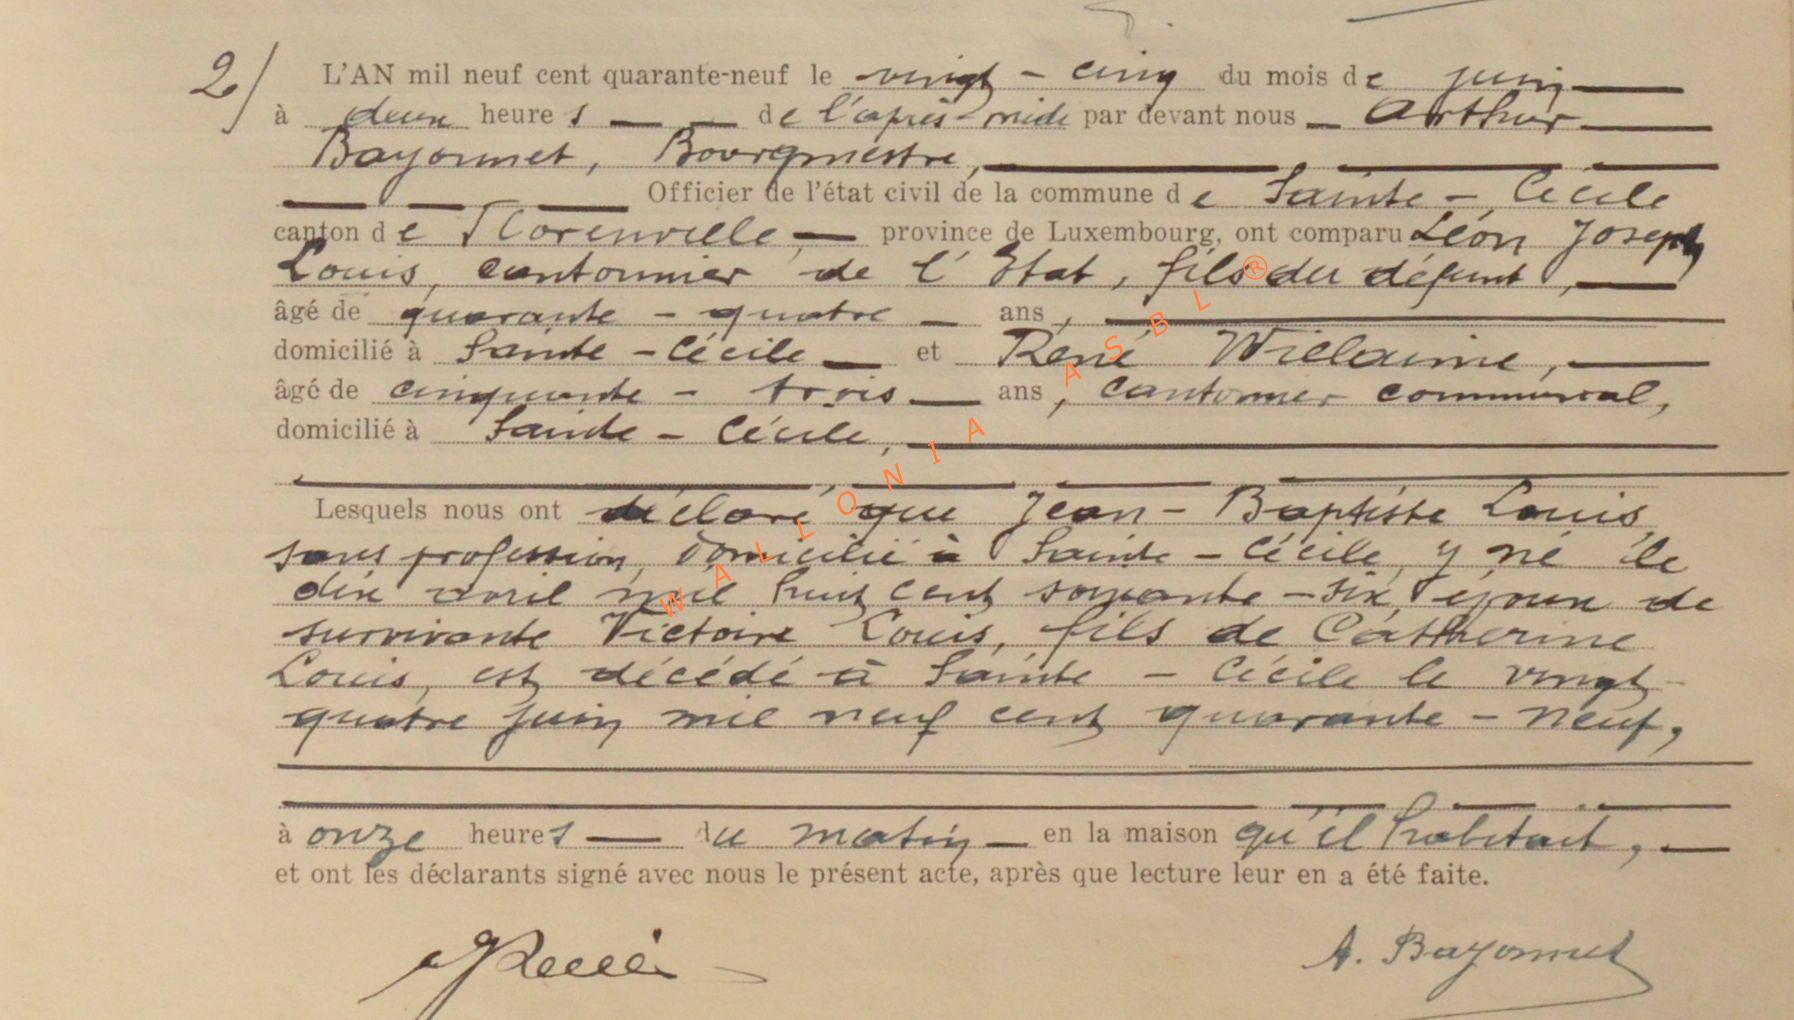 2/ L'AN mil neuf cent quarante-neuf le vingt-cinq du mois de juin
à deux heures de l'après-midi par devant nous Arthur
Bayonnet, Bourgmestre,
Officier de l'état civil de la commune de Sainte-Cécile
canton de Florenville, province de Luxembourg, ont comparu Léon Joseph
Louis, cantonnier de l'Etat, fils du défunt,
âgé de quarante-quatre ans,
domicilié à Sainte-Cécile et René Willaime,
âgé de cinquante-trois ans, cantonnier communal,
domicilié à Sainte-Cécile,
Lesquels nous ont déclaré que Jean-Baptiste Louis,
sans profession, domicilié à Sainte-Cécile, y né le
dix avril mil huit cent soixante-six, époux de
survivante Victoire Louis, fils de Catherine
Louis, est décédé à Sainte-Cécile le vingt-
quatre juin mil neuf cent quarante-neuf,
à onze heures du matin en la maison qu'il habitait,
et ont les déclarants signé avec nous le présent acte, après que lecture leur en a été faite.
A. Bayonnet
WALLONIA ASBL ®